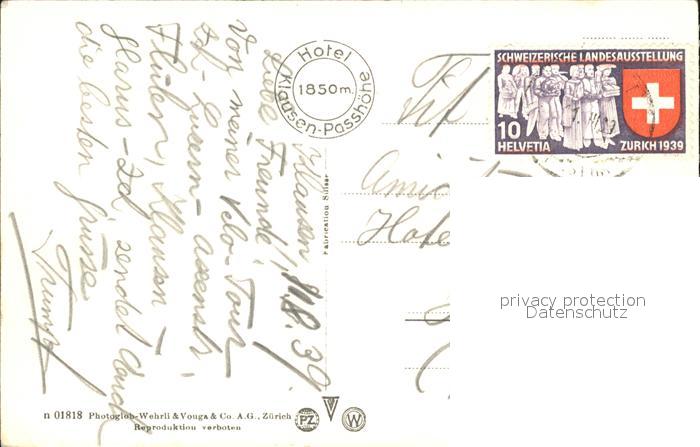 Hotel
Klausen-Passhöhe
1850 m.
Klausen 11.8.39
Liebe Freunde!
Von meiner Velo-Tour
Luzern – Axenstr.
Flüelen, Klausen –
Glarus – sendet Euch
die besten Grüsse
SCHWEIZERISCHE LANDESAUSSTELLUNG
10
HELVETIA ZURICH 1939
Hote
Fabrication Suisse
privacy protection
Datenschutz
n 01818 Photoglob-Wehrli & Vouga & Co. A.G., Zürich
Reproduktion verboten
PZ
W